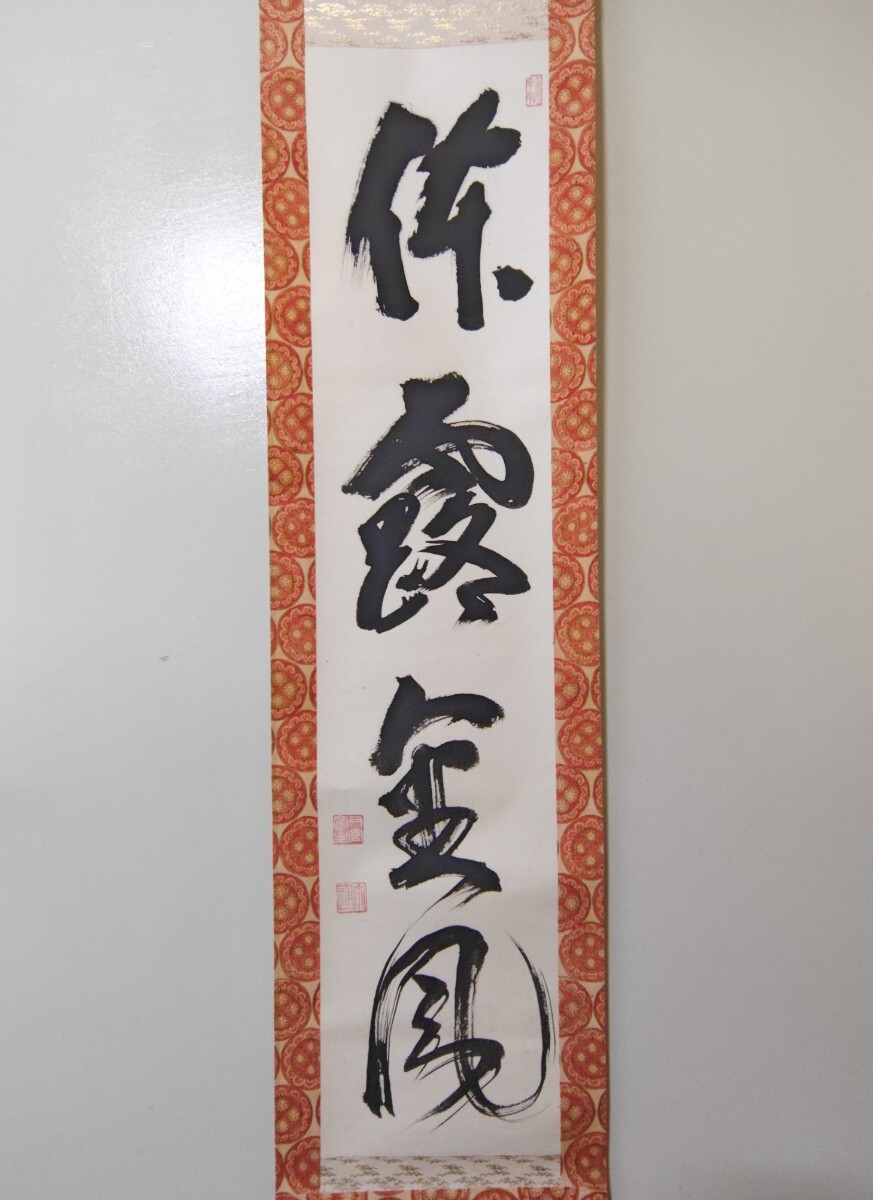 体露金風